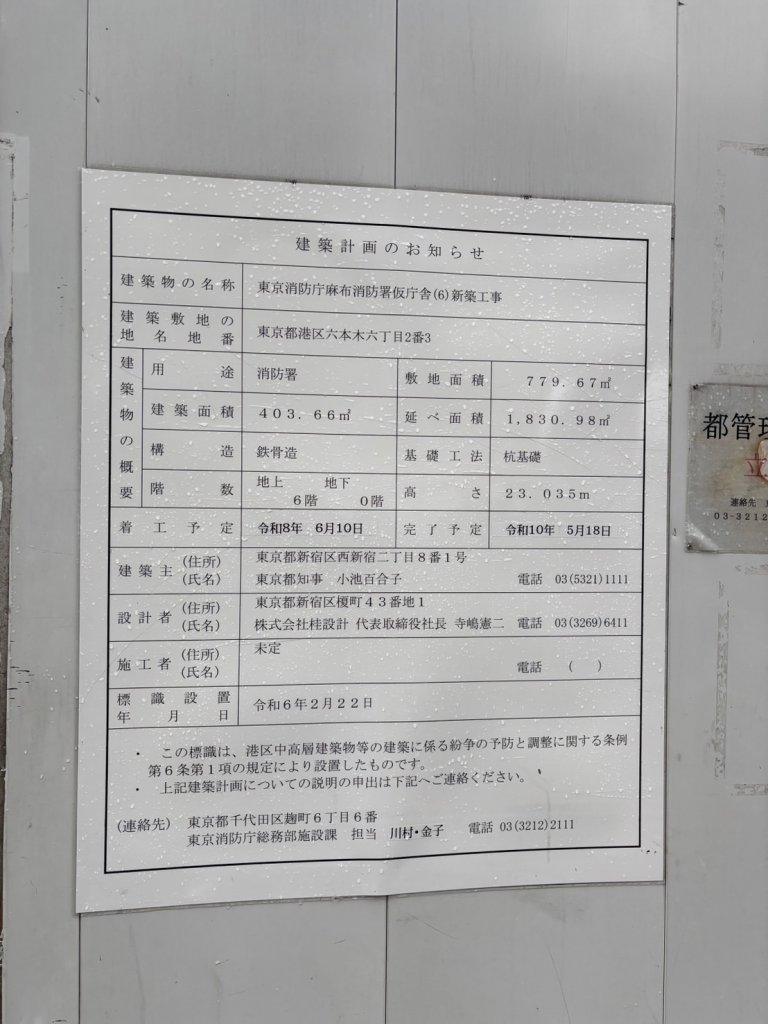 建築計画のお知らせ
建築物の名称 東京消防庁麻布消防署仮庁舎(6)新築工事
建築敷地の地名地番 東京都港区六本木六丁目2番3
建築物の概要
用途 消防署 敷地面積 779.67㎡
建築面積 403.66㎡ 延べ面積 1,830.98㎡
構造 鉄骨造 基礎工法 杭基礎
階数 地上 6階 地下 0階 高さ 23.035m
着工予定 令和8年 6月10日 完了予定 令和10年 5月18日
建築主 (住所) 東京都新宿区西新宿二丁目8番1号
(氏名) 東京都知事 小池百合子 電話 03(5321)1111
設計者 (住所) 東京都新宿区榎町43番地1
(氏名) 株式会社桂設計 代表取締役社長 寺嶋憲二 電話 03(3269)6411
施工者 (住所) 未定
(氏名) 電話 ( )
標識設置年月日 令和6年2月22日
・ この標識は、港区中高層建築物等の建築に係る紛争の予防と調整に関する条例
第6条第1項の規定により設置したものです。
・ 上記建築計画についての説明の申出は下記へご連絡ください。
(連絡先) 東京都千代田区麹町6丁目6番
東京消防庁総務部施設課 担当 川村・金子 電話 03(3212)2111
都管理
立
連絡先
03-3212